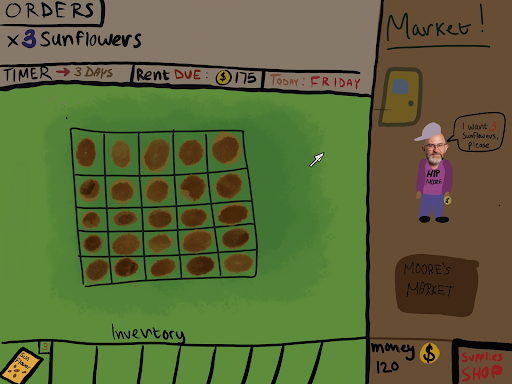 ORDERS
x3 Sunflowers
TIMER → 3 DAYS
Rent DUE: $ 175
TODAY: FRIDAY
Market!
I want 3
Sunflowers,
please
HIP
MOORE
MOORE'S
MARKET
Inventory
3
Sun
Flower
money $
120
Supplies
SHOP